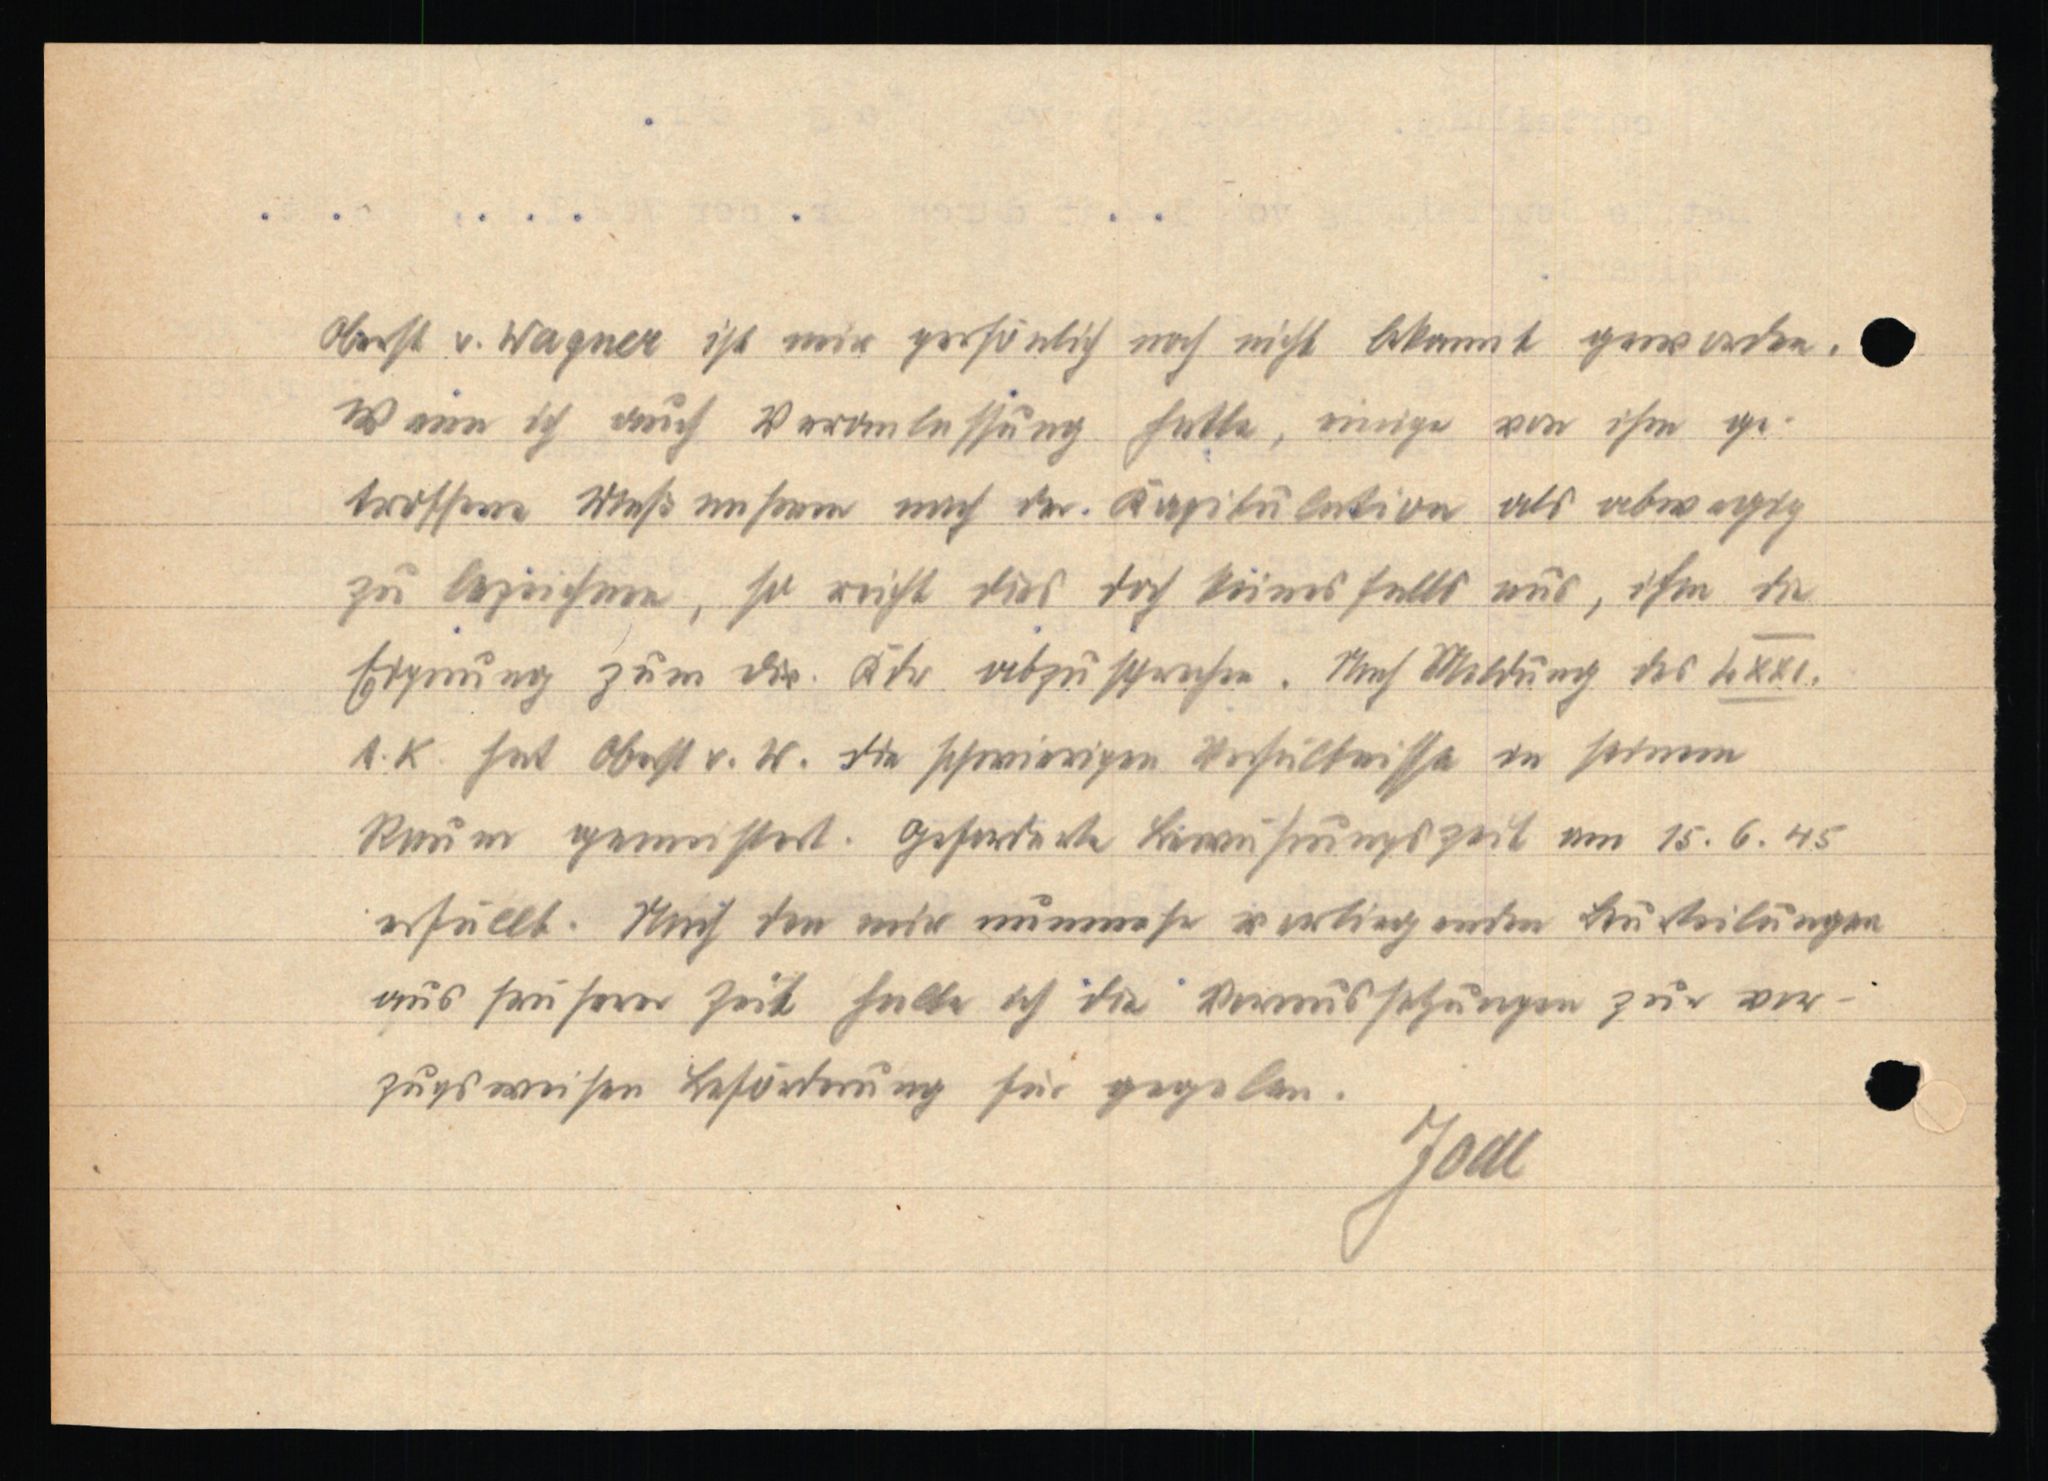 Oberst v. Wagner ist mir persönlich noch nicht bekannt geworden.
Wenn ich auch Veranlassung hatte, einige von ihm ge-
troffene Maßnahmen nach der Kapitulation als abwegig
zu bezeichnen, so reicht dies doch keinesfalls aus, ihm die
Eignung zum Div. Kdr abzusprechen. Nach Meldung des LXXI.
A.K. hat Oberst v. W. die schwierigen Verhältnisse in seinem
Raum gemeistert. Geforderte Bewährungszeit am 15. 6. 45
erfüllt. Nach den mir nunmehr vorliegenden Beurteilungen
aus früherer Zeit halte ich die Voraussetzungen zur vor-
zugsweisen Beförderung für gegeben.
Jodl